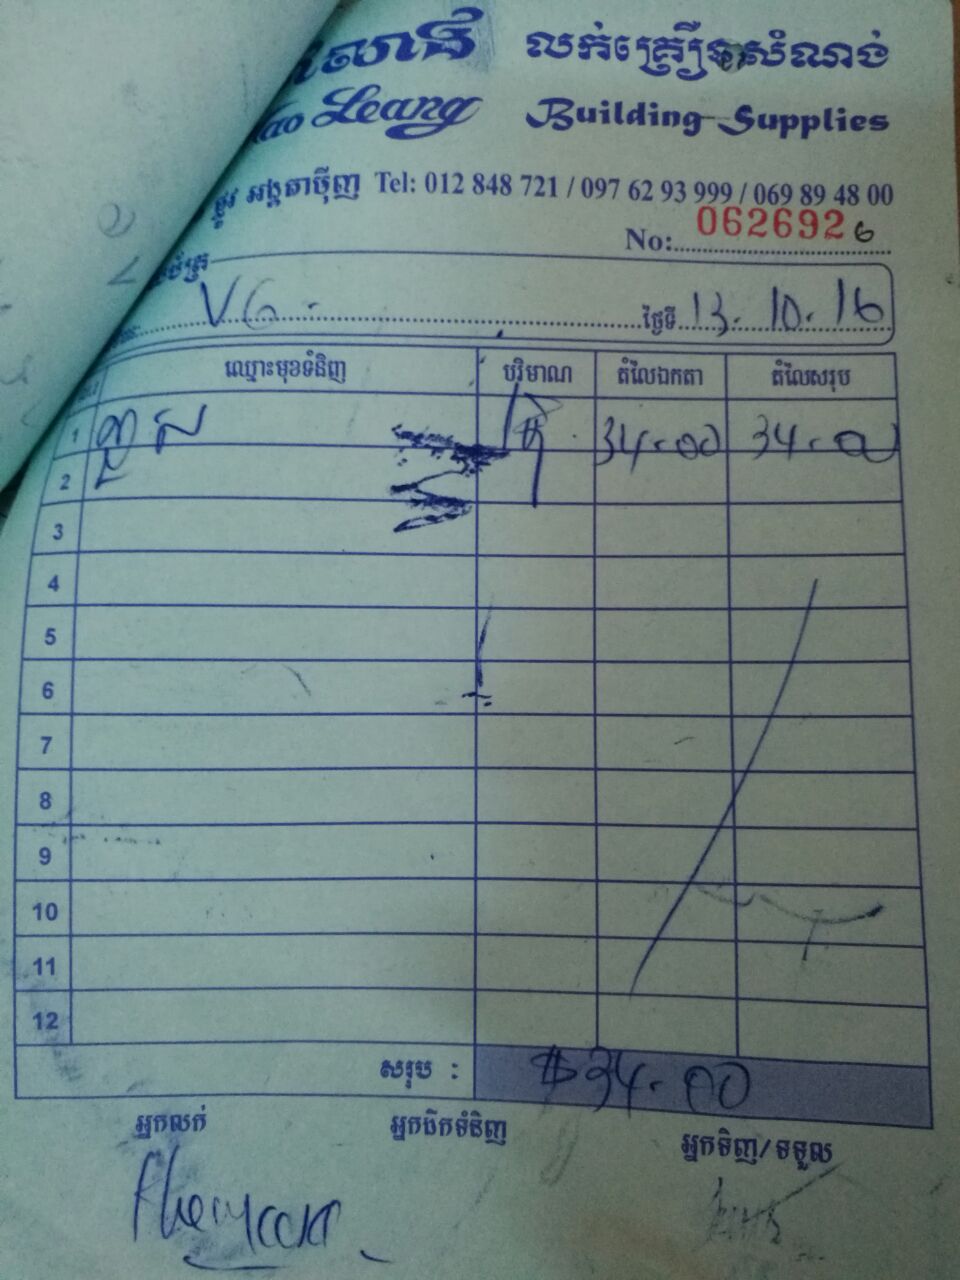 លក់គ្រឿងសំណង់
Leang Building Supplies
អង្គតាម៉ិញ Tel: 012 848 721 / 097 62 93 999 / 069 89 48 00
No: 062692 6
VG. ថ្ងៃទី 13.10.16
ឈ្មោះមុខទំនិញ បរិមាណ តំលៃឯកតា តំលៃសរុប
1 34.00 34.00
2
3
4
5
6
7
8
9
10
11
12
សរុប : $34.00
អ្នកលក់ អ្នកដឹកទំនិញ អ្នកទិញ/ទទួល